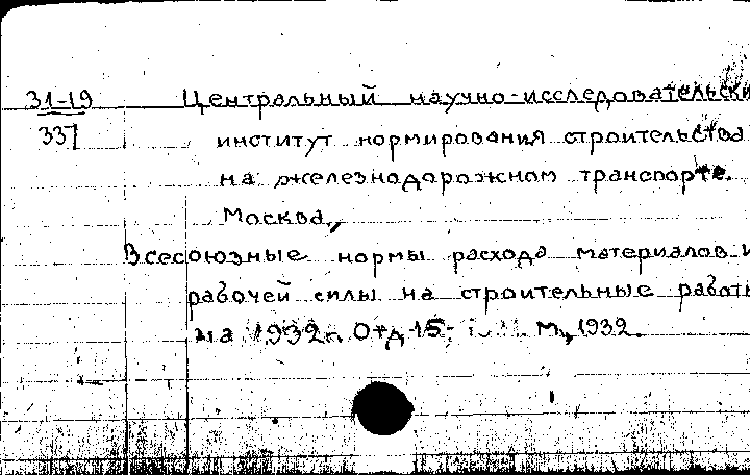 31-19 Центральный научно-исследовательски
337 институт нормирования строительства
на железнодорожном транспорте.
Москва,
Всесоюзные нормы расхода материалов и
рабочей силы на строительные работы
на 1932 г. Отд. 15; М., 1932.